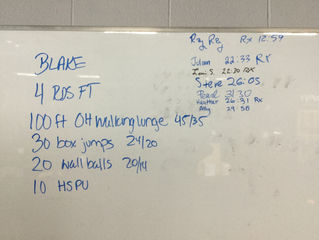 BLAKE
4 RDS FT
100 ft OH walking lunge 45/35
30 box jumps 24/20
20 wall balls 20/14
10 HSPU
Rx 12:59
Julian 22:33 RX
22:30 RX
Steve 26:03
21:30
Heather 26:31 Rx
29:58